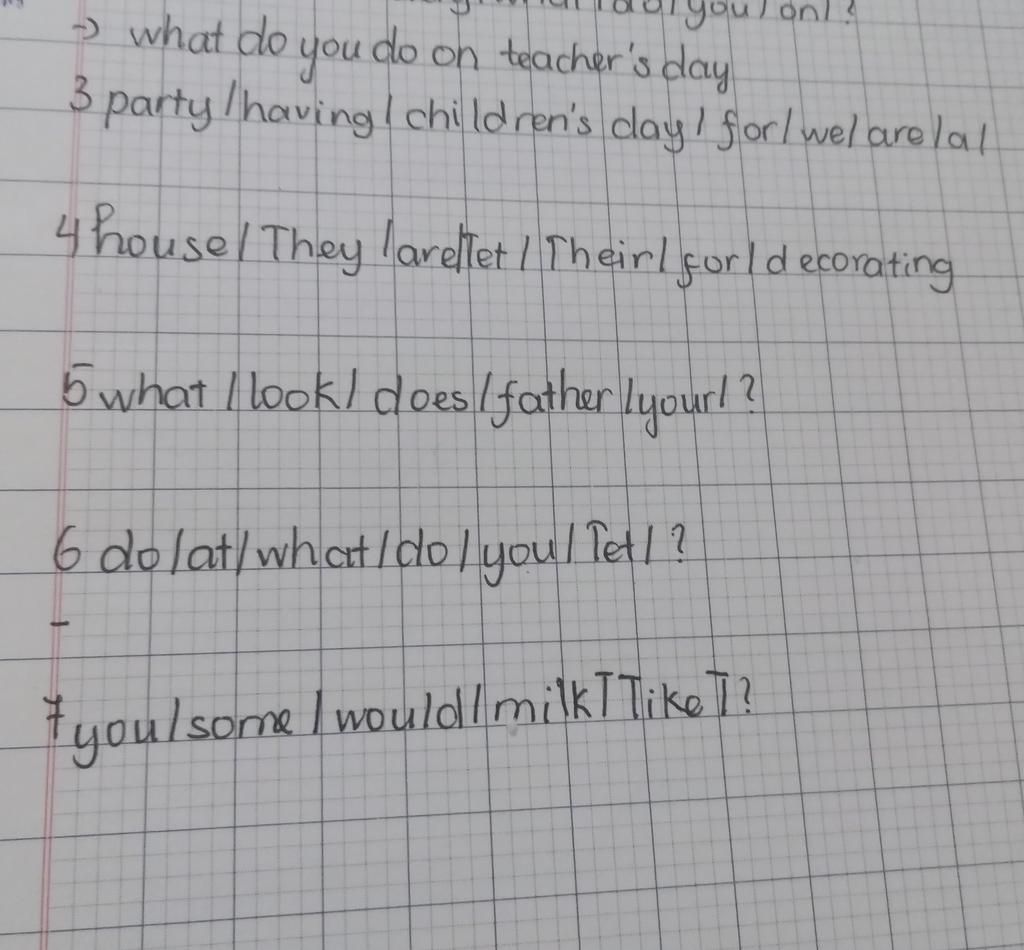 you/on/?
→ what do you do on teacher's day
3 party/having/children's day/for/we/are/a/
4 house/They/are/Tet/Their/for/decorating
5 what/look/does/father/your/?
6 do/at/what/do/you/Tet/?
-
7 you/some/would/milk/like/?